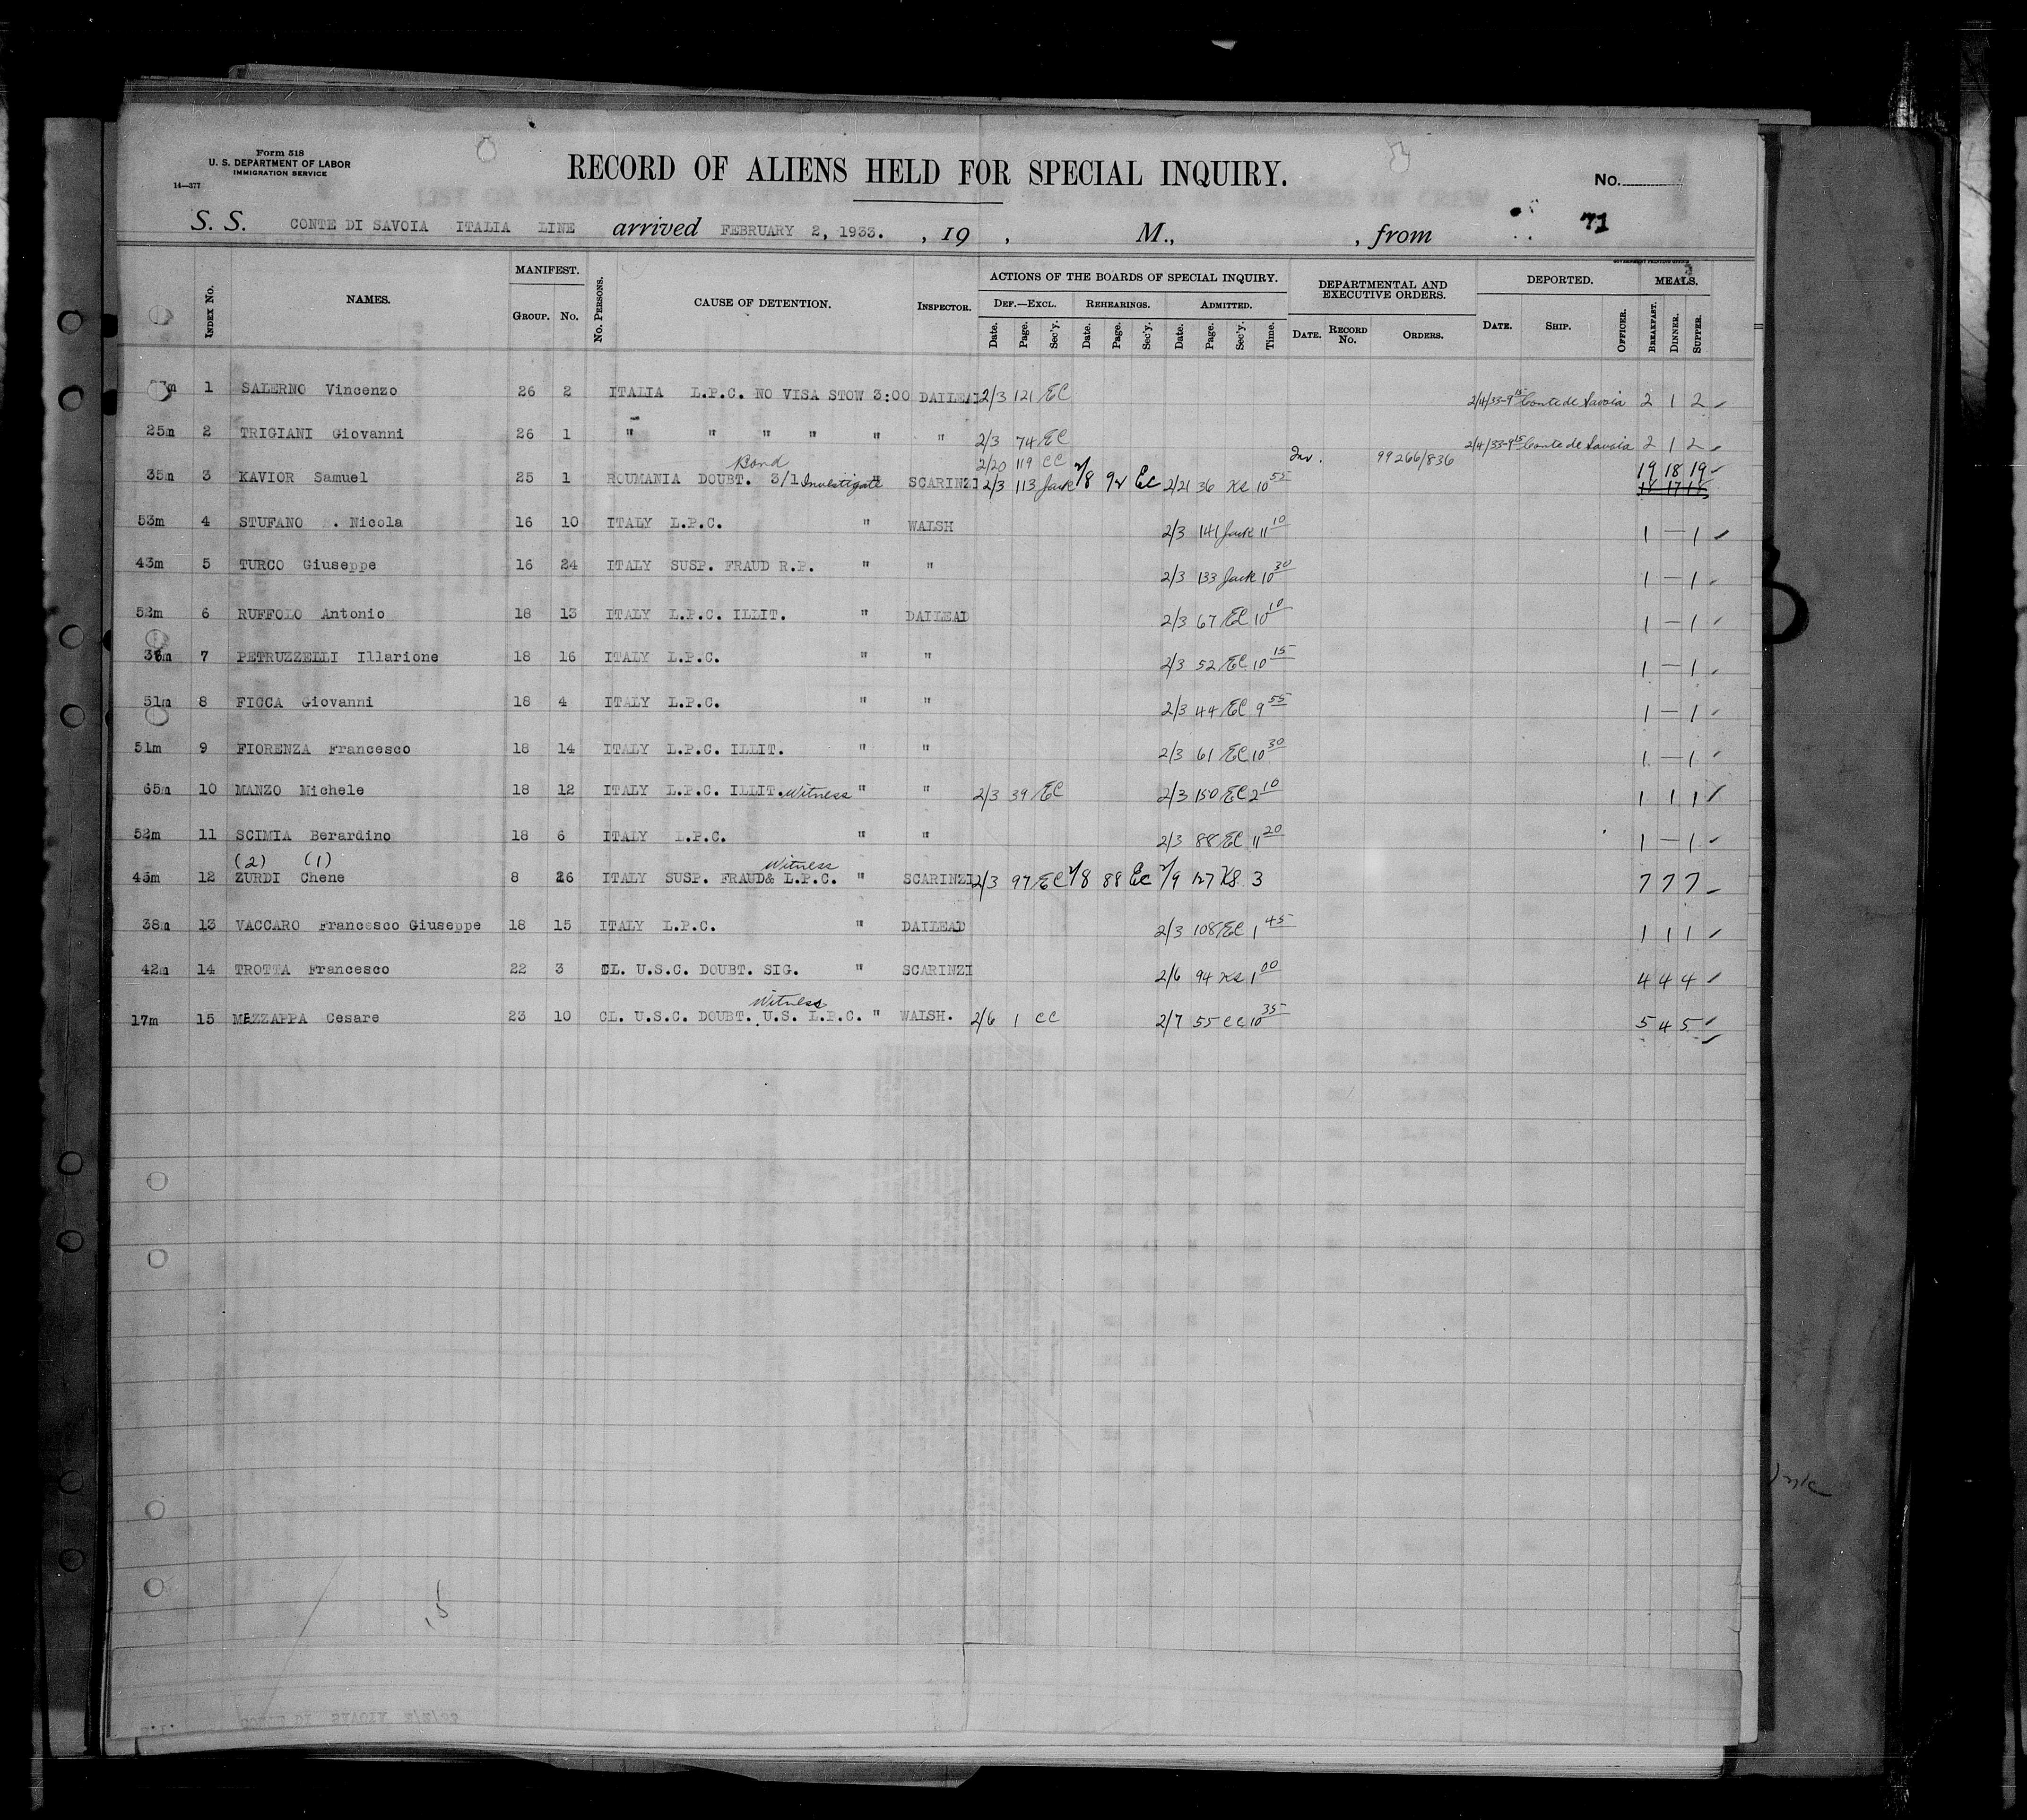 Form 518
U. S. DEPARTMENT OF LABOR
IMMIGRATION SERVICE
14—377
RECORD OF ALIENS HELD FOR SPECIAL INQUIRY.
No.
71
S. S. CONTE DI SAVOIA ITALIA LINE arrived FEBRUARY 2, 1933. , 19 , M., , from
INDEX No. NAMES. MANIFEST. GROUP. No. No. PERSONS. CAUSE OF DETENTION. INSPECTOR. ACTIONS OF THE BOARDS OF SPECIAL INQUIRY. DEF.—EXCL. Date. Page. Sec'y. REHEARINGS. Date. Page. Sec'y. ADMITTED. Date. Page. Sec'y. Time. DEPARTMENTAL AND EXECUTIVE ORDERS. DATE. RECORD No. ORDERS. DEPORTED. DATE. SHIP. OFFICER. MEALS. BREAKFAST. DINNER. SUPPER.
1 SALERNO Vincenzo 26 2 ITALIA L.P.C. NO VISA STOW 3:00 DAILEAD 2/3 121 EC 2/4/33-9 15 Conte de Savoia 2 1 2
25m 2 TRIGIANI Giovanni 26 1 " " " " " " 2/3 74 EC 2/4/33-9 15 Conte de Savoia 2 1 2
Bond 2/20 119 CC Inv. 99266/836 19 18 19
35m 3 KAVIOR Samuel 25 1 ROUMANIA DOUBT. 3/1 Investigate " SCARINZI 2/3 113 Jack 2/8 92 EC 2/21 36 KS 10 55
53m 4 STUFANO . Nicola 16 10 ITALY L.P.C. " WALSH 2/3 141 Jack 11 10 1 — 1
43m 5 TURCO Giuseppe 16 24 ITALY SUSP. FRAUD R.P. " " 2/3 133 Jack 10 30 1 — 1
52m 6 RUFFOLO Antonio 18 13 ITALY L.P.C. ILLIT. " DAILEAD 2/3 67 EC 10 10 1 — 1
7 PETRUZZELLI Illarione 18 16 ITALY L.P.C. " " 2/3 52 EC 10 15 1 — 1
51m 8 FICCA Giovanni 18 4 ITALY L.P.C. " " 2/3 44 EC 9 55 1 — 1
51m 9 FIORENZA Francesco 18 14 ITALY L.P.C. ILLIT. " " 2/3 61 EC 10 30 1 — 1
65m 10 MANZO Michele 18 12 ITALY L.P.C. ILLIT. Witness " " 2/3 39 EC 2/3 150 EC 2 10 1 1 1
52m 11 SCIMIA Berardino 18 6 ITALY L.P.C. " " 2/3 88 EC 11 20 1 — 1
(2) (1) Witness
45m 12 ZURDI Chene 8 26 ITALY SUSP. FRAUD& L.P.C. " SCARINZI 2/3 97 EC 2/8 88 EC 2/9 127 KS 3 7 7 7
38m 13 VACCARO Francesco Giuseppe 18 15 ITALY L.P.C. " DAILEAD 2/3 108 EC 1 45 1 1 1
42m 14 TROTTA Francesco 22 3 CL. U.S.C. DOUBT. SIG. " SCARINZI 2/6 94 KS 1 00 4 4 4
Witness
17m 15 MAZZAPPA Cesare 23 10 CL. U.S.C. DOUBT. U.S. L.P.C. " WALSH. 2/6 1 CC 2/7 55 CC 10 35 5 4 5
15